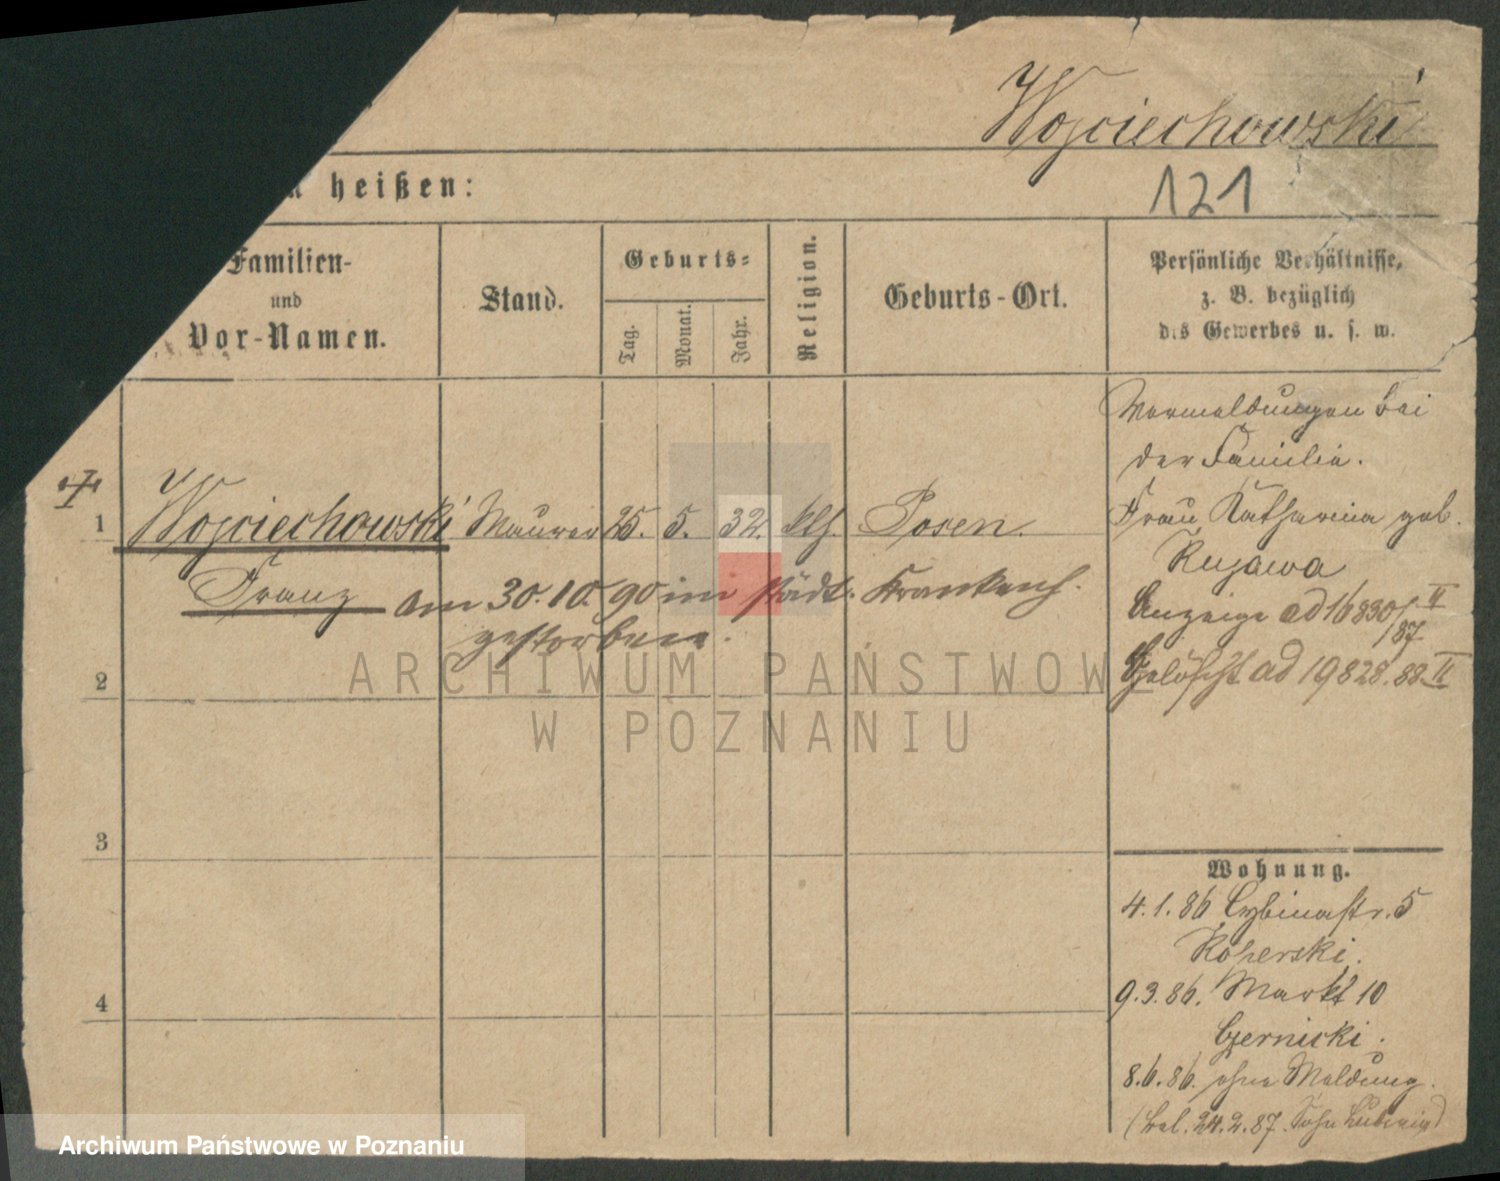 Wojciechowski
121
n heißen:
Familien-
und
Vor-Namen.
Stand.
Geburts-
Tag.
Monat.
Jahr.
Religion.
Geburts-Ort.
Persönliche Verhältnisse,
z. B. bezüglich
des Gewerbes u. s. w.
1
Wojciechowski Maurer 25. 5. 32. kth. Posen.
Franz am 30.10.90 im städt. Krankenh.
gestorben.
2
3
4
Vermeldungen bei
der Familie.
Frau Katharina geb.
Kujawa
Anzeige ad 16830/87 II
Gelöscht ad 19828.88 II
Wohnung.
4.1.86 Cybinastr. 5
9.3.86. Markt 10
8.6.86. ohne Meldung.
24.2.87. Sohn Ludwig)
ARCHIWUM PAŃSTWOWE
W POZNANIU
Archiwum Państwowe w Poznaniu